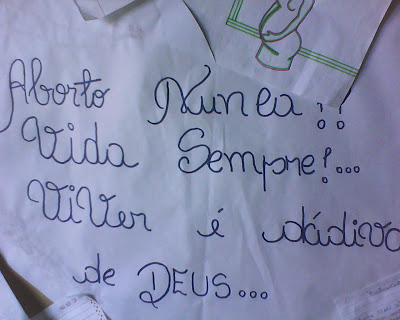 Aborto Nunca!!
Vida Sempre!...
Viver é dádiva
de DEUS...